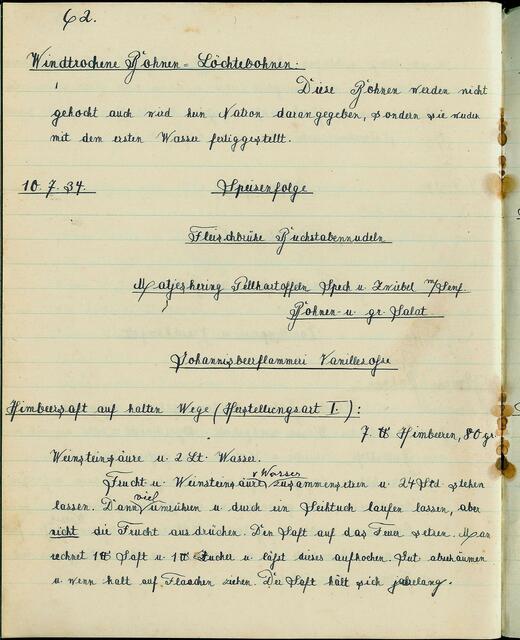 62.
Windtrockene Bohnen = Löchtebohnen:
Diese Bohnen werden nicht
gekocht auch wird kein Natron daran gegeben, sondern sie werden
mit dem ersten Wasser fertiggestellt.
10. 7. 34. Speisenfolge
Fleischbrühe Buchstabennudeln
Matjeshering Pellkartoffeln Speck u. Zwiebel m/Senf.
Bohnen- u. gr. Salat
Johannisbeerflammeri Vanillesoße
Himbeersaft auf kalten Wege (Herstellungsart I.):
7 ℔ Himbeeren, 80 gr
Weinsteinsäure u. 2 Lt. Wasser.
Frucht u. Weinsteinsäure Wasser zusammensetzen u. 24 Std stehen
lassen. Dann viel umrühren u. durch ein Seihtuch laufen lassen, aber
nicht die Frucht ausdrücken. Den Saft auf das Feuer setzen. Man
rechnet 1 ℔ Saft u. 1 ℔ Zucker u. läßt dieses aufkochen. Gut abschäumen
u. wenn kalt auf Flaschen ziehen. Der Saft hält sich jahrelang.